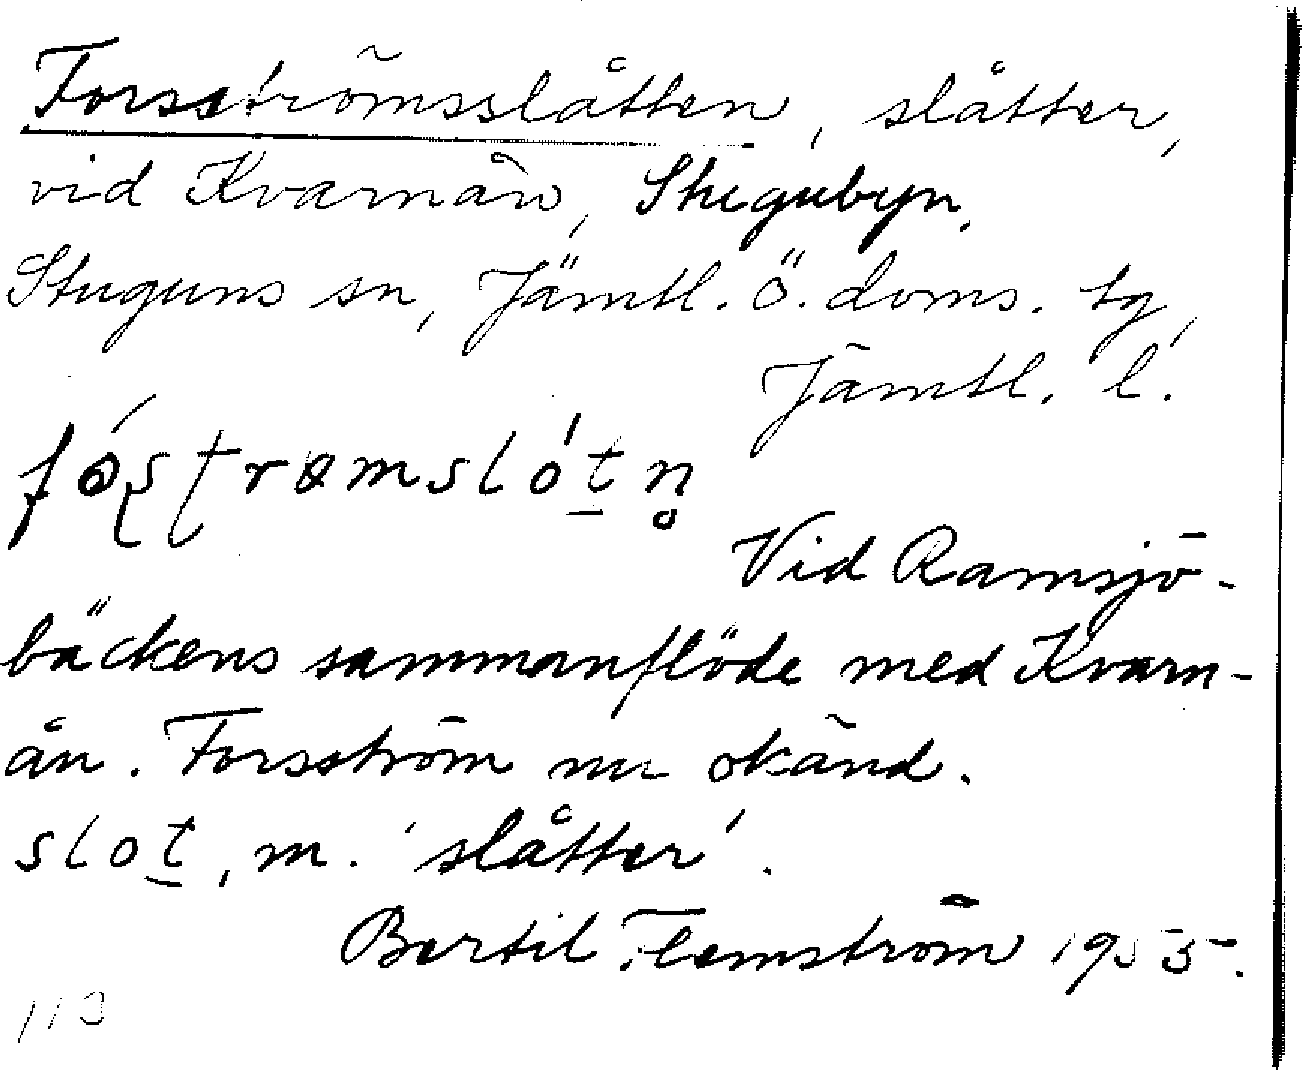 Forsströmsslåtten, slåtter,
vid Kvarnån, Stugubyn,
Stuguns sn, Jämtl. ö. doms. tg,
Jämtl. l.
fóʂʈrømslót̲n̥
Vid Ramsjö-
bäckens sammanflöde med Kvarn-
ån. Forsström nu okänd.
slot̲, m. 'slåtter'.
Bertil Flemström 1955.
113